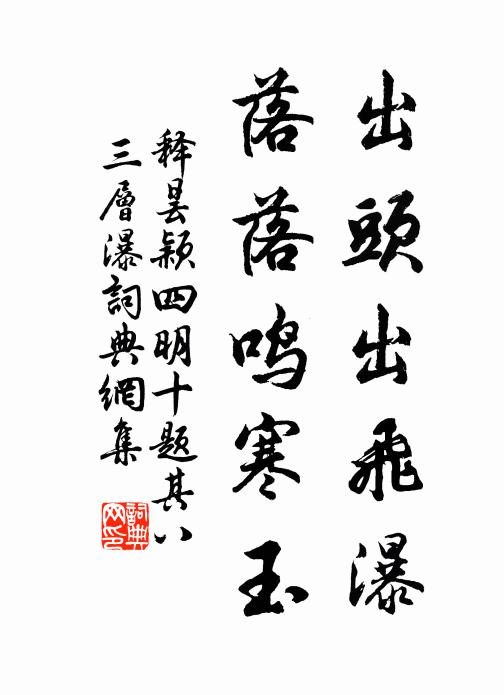 出頭出飛瀑
落落鳴寒玉
释昙颖四明十题其八
三層瀑詞典網集
詞典网印